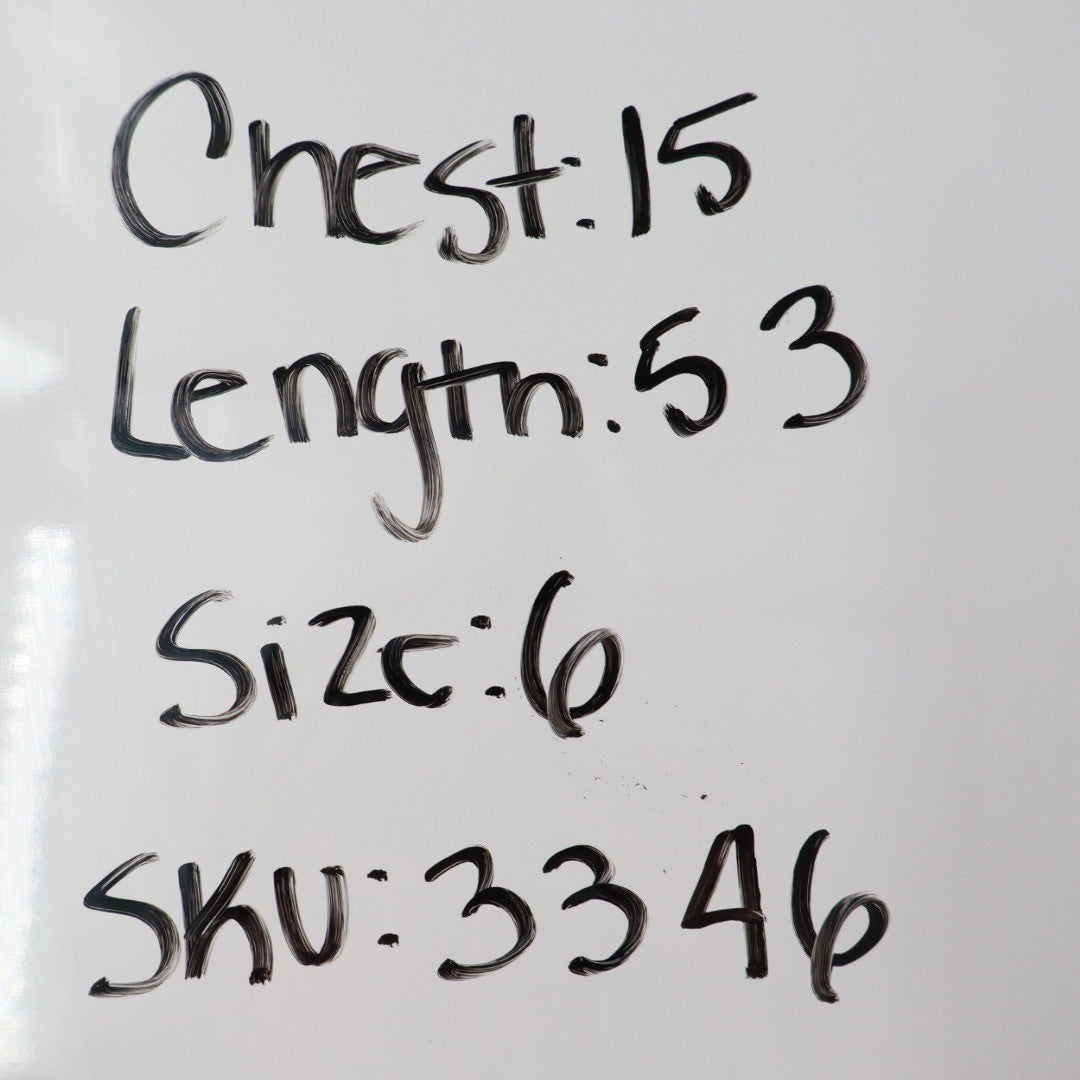 Chest: 15
Length: 53
Size: 6
SKU: 3346